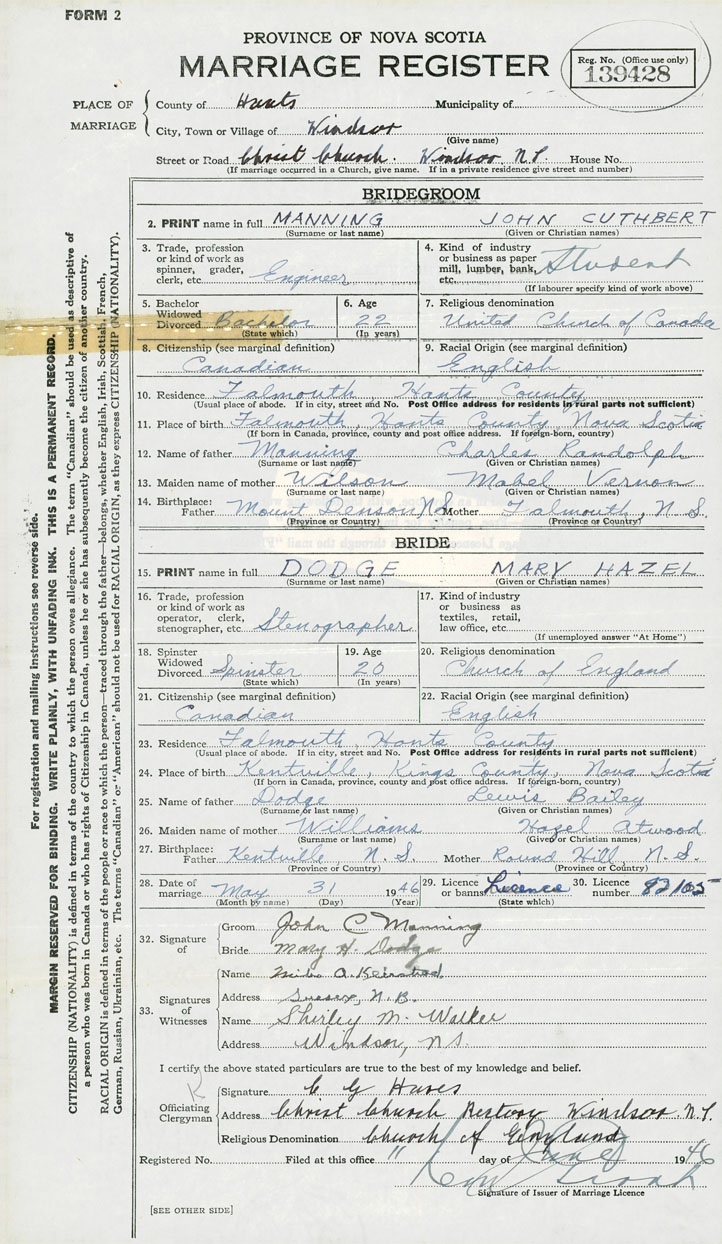 FORM 2
PROVINCE OF NOVA SCOTIA
MARRIAGE REGISTER
Reg. No. (Office use only)
139428
PLACE OF MARRIAGE
County of Hants Municipality of
City, Town or Village of Windsor
(Give name)
Street or Road Christ Church. Windsor N.S. House No.
(If marriage occurred in a Church, give name. If in a private residence give street and number)
BRIDEGROOM
2. PRINT name in full MANNING JOHN CUTHBERT
(Surname or last name) (Given or Christian names)
3. Trade, profession or kind of work as spinner, grader, clerk, etc. Engineer
4. Kind of industry or business as paper mill, lumber, bank, etc. Student
(If labourer specify kind of work above)
5. Bachelor Widowed Divorced Bachelor
(State which)
6. Age 22
(In years)
7. Religious denomination
United Church of Canada
8. Citizenship (see marginal definition)
Canadian
9. Racial Origin (see marginal definition)
English
10. Residence Falmouth Hants County
(Usual place of abode. If in city, street and No. Post Office address for residents in rural parts not sufficient)
11. Place of birth Falmouth, Hants County Nova Scotia
(If born in Canada, province, county and post office address. If foreign-born, country)
12. Name of father Manning Charles Randolph
(Surname or last name) (Given or Christian names)
13. Maiden name of mother Wilson Mabel Vernon
(Surname or last name) (Given or Christian names)
14. Birthplace: Father Mount Denson N.S. Mother Falmouth, N.S.
(Province or Country) (Province or Country)
BRIDE
15. PRINT name in full DODGE MARY HAZEL
(Surname or last name) (Given or Christian names)
16. Trade, profession or kind of work as operator, clerk, stenographer, etc. Stenographer
17. Kind of industry or business as textiles, retail, law office, etc.
(If unemployed answer "At Home")
18. Spinster Widowed Divorced Spinster
(State which)
19. Age 20
(In years)
20. Religious denomination
Church of England
21. Citizenship (see marginal definition)
Canadian
22. Racial Origin (see marginal definition)
English
23. Residence Falmouth, Hants County
(Usual place of abode. If in city, street and No. Post Office address for residents in rural parts not sufficient)
24. Place of birth Kentville, Kings County, Nova Scotia
(If born in Canada, province, county and post office address. If foreign-born, country)
25. Name of father Dodge Lewis Bailey
(Surname or last name) (Given or Christian names)
26. Maiden name of mother Williams Hazel Atwood
(Surname or last name) (Given or Christian names)
27. Birthplace: Father Kentville, N.S. Mother Round Hill, N.S.
(Province or Country) (Province or Country)
28. Date of marriage May 31 1946
(Month by name) (Day) (Year)
29. Licence or banns Licence
(State which)
30. Licence number 82105
32. Signature of
Groom John C Manning
Bride Mary H. Dodge
33. Signatures of Witnesses
Name A.
Address Sussex, N.B.
Name Shirley M. Walker
Address Windsor, N.S.
I certify the above stated particulars are true to the best of my knowledge and belief.
Officiating Clergyman
Signature C G
Address Christ Church Rectory Windsor N.S.
Religious Denomination Church of England
Registered No. Filed at this office 11 day of June 1946
Signature of Issuer of Marriage Licence
[SEE OTHER SIDE]
For registration and mailing instructions see reverse side.
MARGIN RESERVED FOR BINDING. WRITE PLAINLY, WITH UNFADING INK. THIS IS A PERMANENT RECORD.
CITIZENSHIP (NATIONALITY) is defined in terms of the country to which the person owes allegiance. The term "Canadian" should be used as descriptive of
a person who was born in Canada or who has rights of Citizenship in Canada, unless he or she has subsequently become the citizen of another country.
RACIAL ORIGIN is defined in terms of the people or race to which the person—traced through the father—belongs, whether English, Irish, Scottish, French,
German, Russian, Ukrainian, etc. The terms "Canadian" or "American" should not be used for RACIAL ORIGIN, as they express CITIZENSHIP (NATIONALITY).